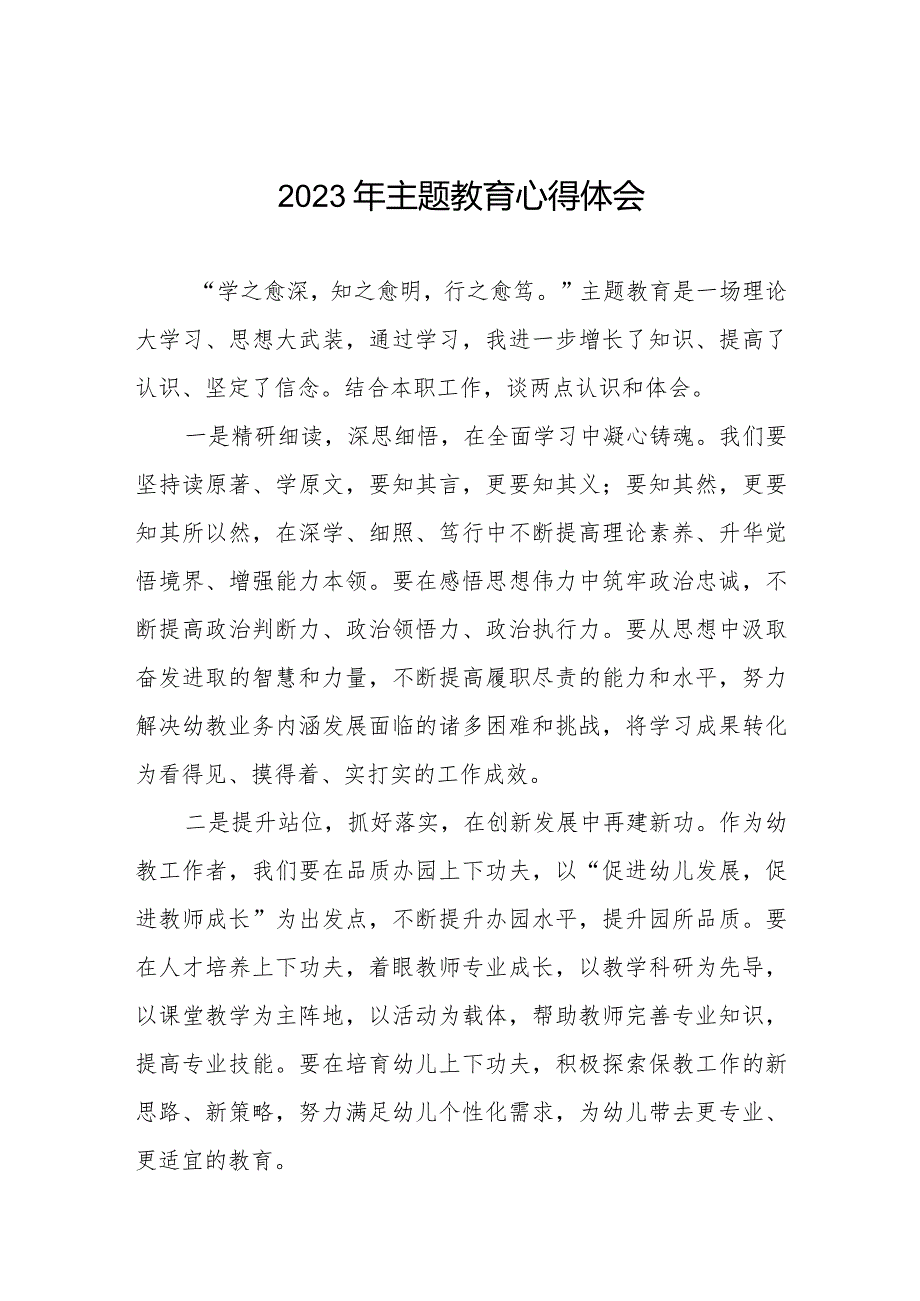 2023年主题教育心得体会
“学之愈深，知之愈明，行之愈笃。”主题教育是一场理论
大学习、思想大武装，通过学习，我进一步增长了知识、提高了
认识、坚定了信念。结合本职工作，谈两点认识和体会。
一是精研细读，深思细悟，在全面学习中凝心铸魂。我们要
坚持读原著、学原文，要知其言，更要知其义；要知其然，更要
知其所以然，在深学、细照、笃行中不断提高理论素养、升华觉
悟境界、增强能力本领。要在感悟思想伟力中筑牢政治忠诚，不
断提高政治判断力、政治领悟力、政治执行力。要从思想中汲取
奋发进取的智慧和力量，不断提高履职尽责的能力和水平，努力
解决幼教业务内涵发展面临的诸多困难和挑战，将学习成果转化
为看得见、摸得着、实打实的工作成效。
二是提升站位，抓好落实，在创新发展中再建新功。作为幼
教工作者，我们要在品质办园上下功夫，以“促进幼儿发展，促
进教师成长”为出发点，不断提升办园水平，提升园所品质。要
在人才培养上下功夫，着眼教师专业成长，以教学科研为先导，
以课堂教学为主阵地，以活动为载体，帮助教师完善专业知识，
提高专业技能。要在培育幼儿上下功夫，积极探索保教工作的新
思路、新策略，努力满足幼儿个性化需求，为幼儿带去更专业、
更适宜的教育。